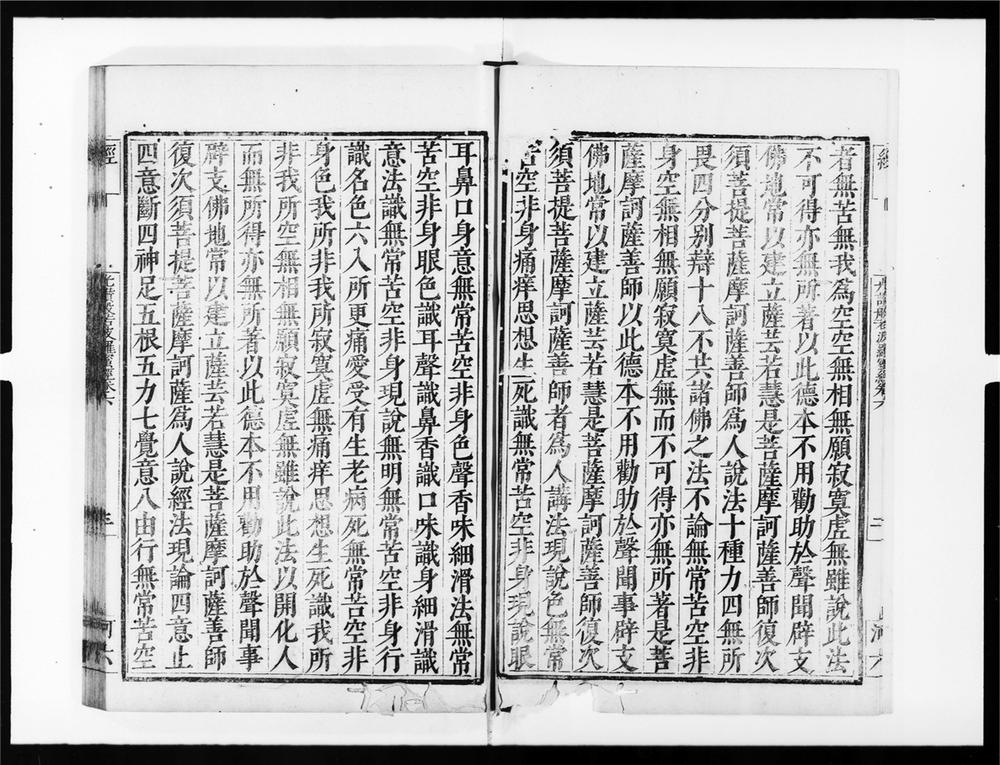 者無苦無我爲空空無相無願寂寞虛無雖說此法
不可得亦無所著以此德本不用勸助於聲聞辟支
佛地常以建立薩芸若慧是菩薩摩訶薩善師復次
須菩提菩薩摩訶薩善師爲人說法十種力四無所
畏四分別辯十八不共諸佛之法不論無常苦空非
身空無相無願寂寞虛無而不可得亦無所著是菩
薩摩訶薩善師以此德本不用勸助於聲聞事辟支
佛地常以建立薩芸若慧是菩薩摩訶薩善師復次
須菩提菩薩摩訶薩善師者爲人講法現說色無常
苦空非身痛痒思想生死識無常苦空非身現說眼
耳鼻口身意無常苦空非身色聲香味細滑法無常
苦空非身眼色識耳聲識鼻香識口味識身細滑識
意法識無常苦空非身現說無明無常苦空非身行
識名色六入所更痛愛受有生老病死無常苦空非
身色我所非我所寂寞虛無痛痒思想生死識我所
非我所空無相無願寂寞虛無雖說此法以開化人
而無所得亦無所著以此德本不用勸助於聲聞事
辟支佛地常以建立薩芸若慧是菩薩摩訶薩善師
復次須菩提菩薩摩訶薩爲人說經法現論四意止
四意斷四神足五根五力七覺意八由行無常苦空